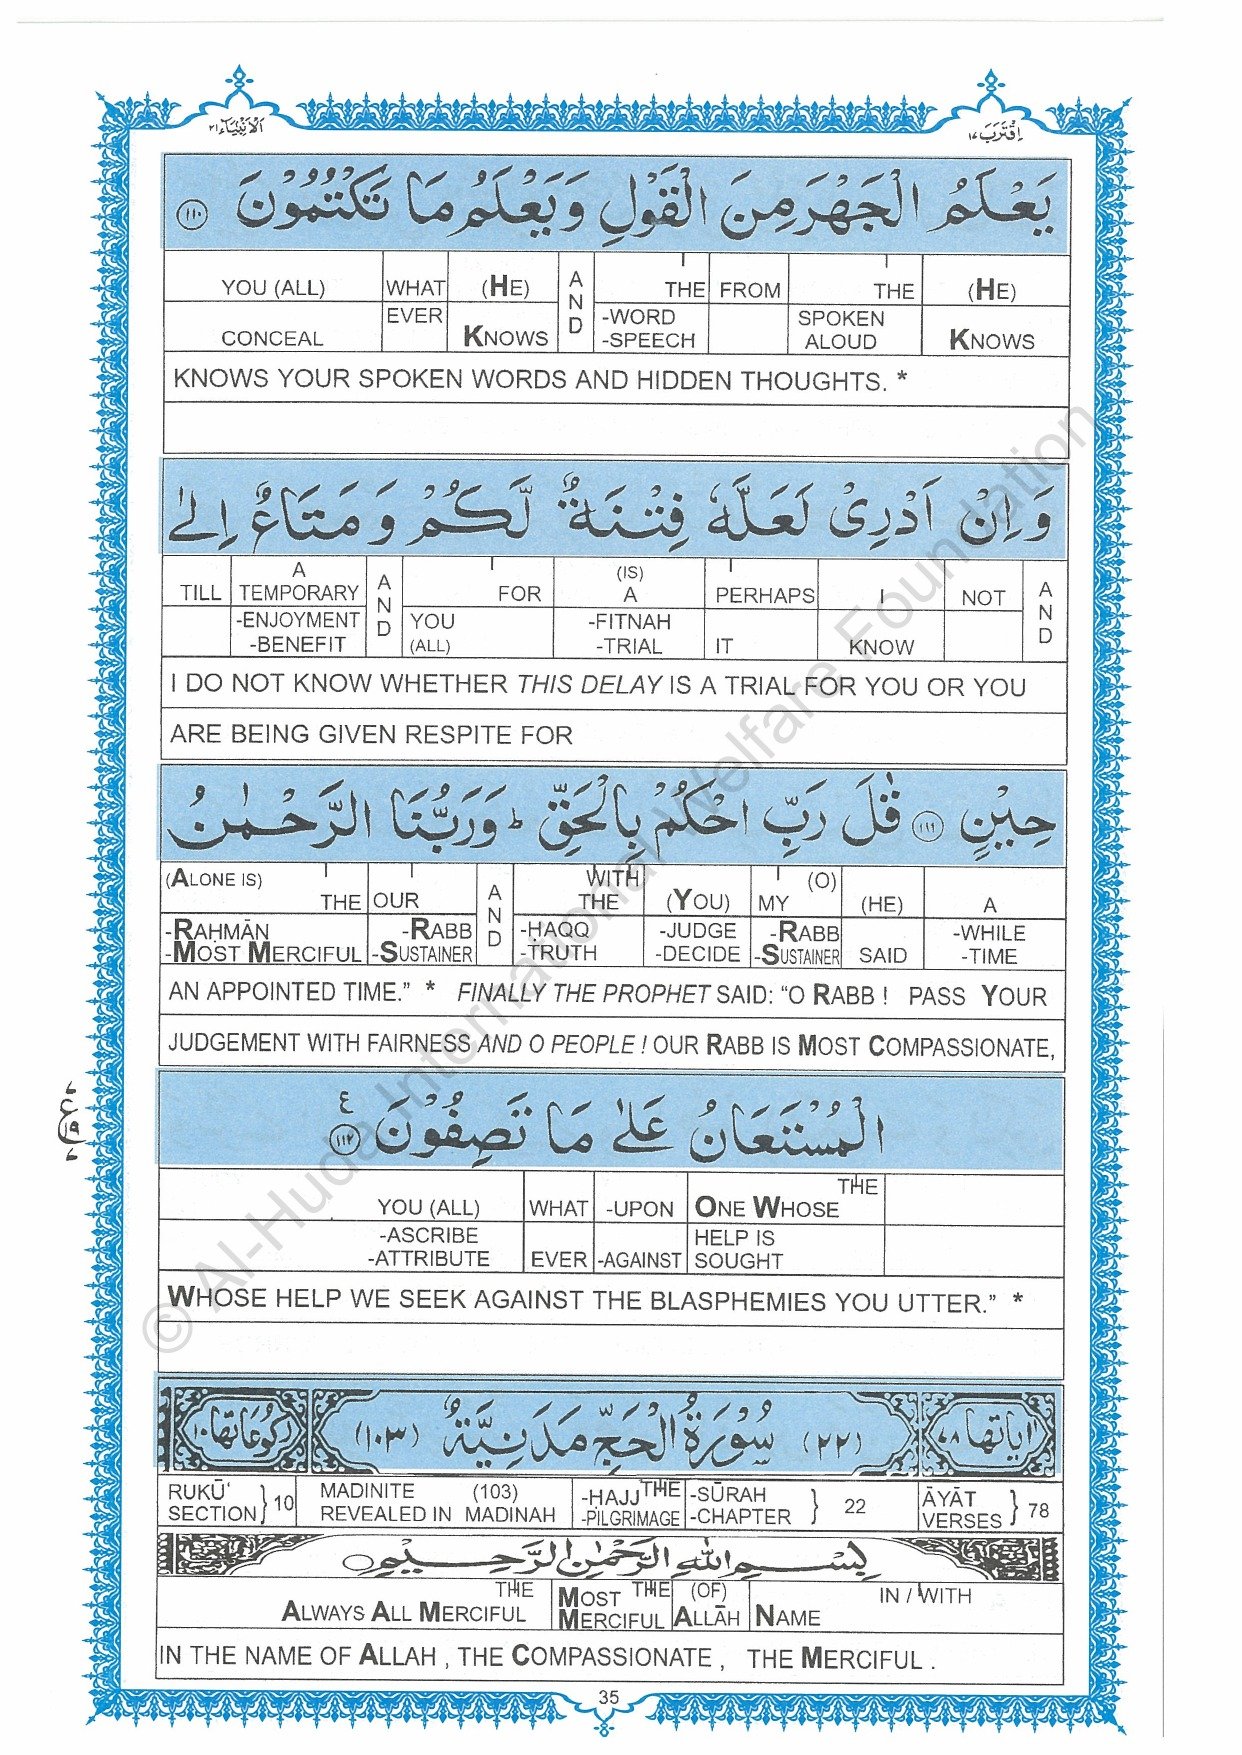 الانبیآء ٢١
اقترب ١٧
يَعْلَمُ الْجَهْرَ مِنَ الْقَوْلِ وَيَعْلَمُ مَا تَكْتُمُوْنَ ١١٠
YOU (ALL) WHAT (HE) AND THE FROM THE (HE)
CONCEAL EVER KNOWS -WORD -SPEECH SPOKEN ALOUD KNOWS
KNOWS YOUR SPOKEN WORDS AND HIDDEN THOUGHTS. *
وَاِنْ اَدْرِىْ لَعَلَّهٗ فِتْنَةٌ لَّكُمْ وَمَتَاعٌ اِلٰى
TILL A TEMPORARY AND FOR (IS) A PERHAPS I NOT AND
-ENJOYMENT -BENEFIT YOU (ALL) -FITNAH -TRIAL IT KNOW
I DO NOT KNOW WHETHER THIS DELAY IS A TRIAL FOR YOU OR YOU
ARE BEING GIVEN RESPITE FOR
حِيْنٍ ١١١ قٰلَ رَبِّ احْكُمْ بِالْحَقِّ ؕ وَرَبُّنَا الرَّحْمٰنُ
(ALONE IS) THE OUR AND WITH THE (YOU) MY (O) (HE) A
-RAḤMĀN -MOST MERCIFUL -RABB -SUSTAINER -ḤAQQ -TRUTH -JUDGE -DECIDE -RABB -SUSTAINER SAID -WHILE -TIME
AN APPOINTED TIME.” * FINALLY THE PROPHET SAID: “O RABB ! PASS YOUR
JUDGEMENT WITH FAIRNESS AND O PEOPLE ! OUR RABB IS MOST COMPASSIONATE,
الْمُسْتَعَانُ عَلٰى مَا تَصِفُوْنَ ١١٢ ع
YOU (ALL) WHAT -UPON ONE WHOSE THE
-ASCRIBE -ATTRIBUTE EVER -AGAINST HELP IS SOUGHT
WHOSE HELP WE SEEK AGAINST THE BLASPHEMIES YOU UTTER.” *
اٰیاتها ٧٨ (٢٢) سُوْرَةُ الْحَجِّ مَدَنِيَّةٌ (١٠٣) رکوعاتها ١٠
RUKŪ‘ SECTION } 10 MADINITE (103) REVEALED IN MADINAH -HAJJ THE -PILGRIMAGE -SŪRAH -CHAPTER } 22 ĀYĀT VERSES } 78
بِسْمِ اللّٰهِ الرَّحْمٰنِ الرَّحِيْمِ
THE ALWAYS ALL MERCIFUL MOST THE MERCIFUL (OF) ALLĀH NAME IN / WITH
IN THE NAME OF ALLAH , THE COMPASSIONATE , THE MERCIFUL .
35
© Al-Huda International Welfare Foundation